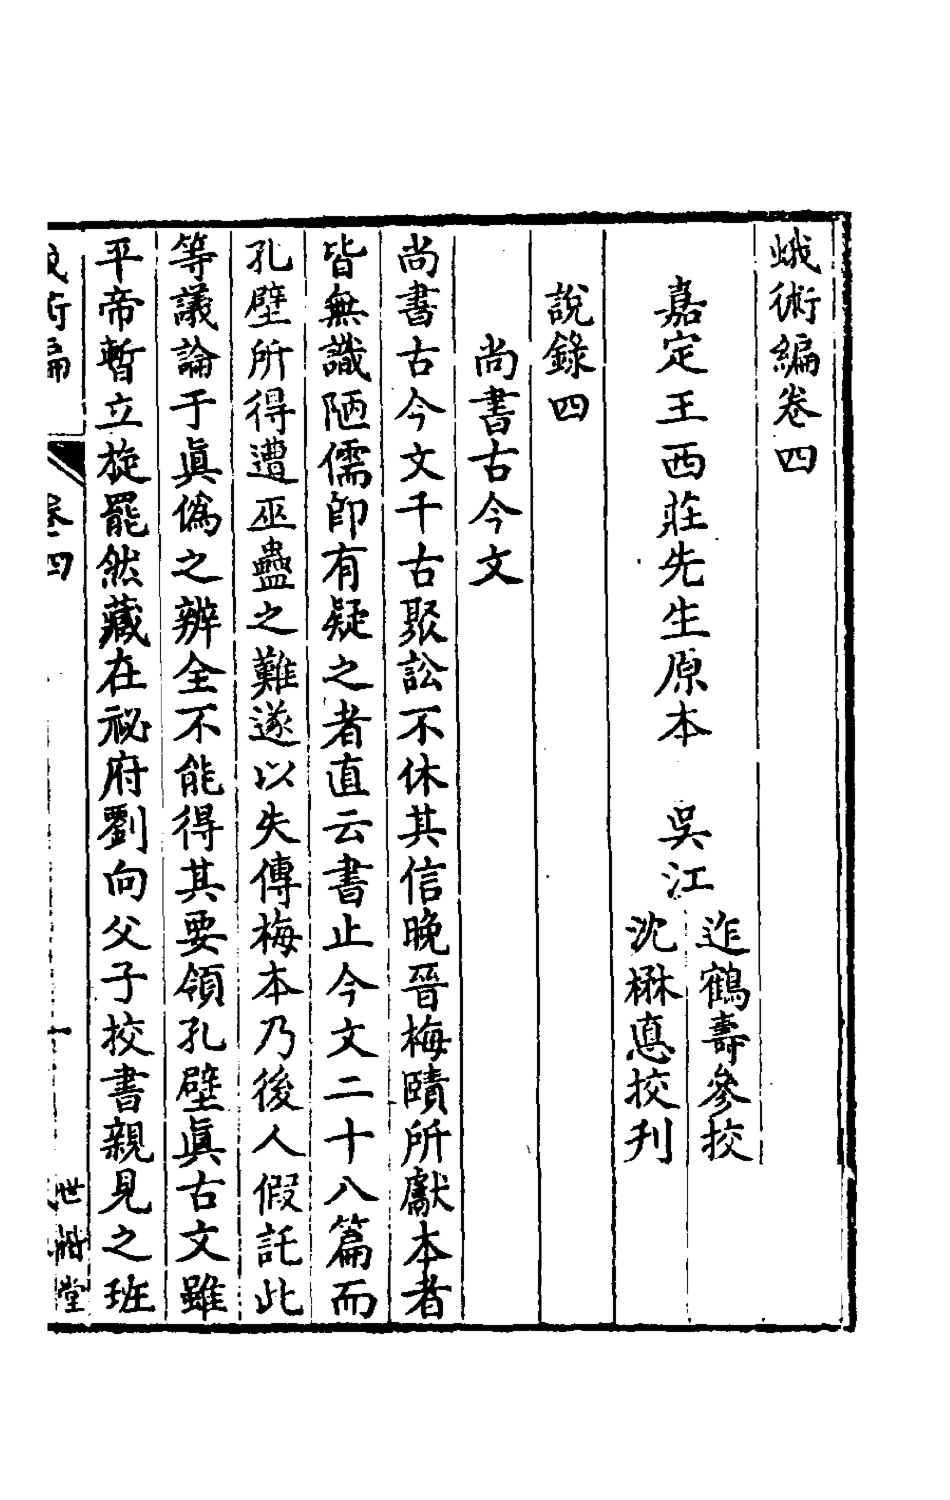 蛾術編卷四
嘉定王西莊先生原本　吳江
迮鶴壽參挍
沈楙悳挍刋
說錄四
尚書古今文
尚書古今文千古聚訟不休其信晚晉梅賾所獻本者
皆無識陋儒卽有疑之者直云書止今文二十八篇而
孔壁所得遭巫蠱之難遂以失傳梅本乃後人假託此
等議論于眞僞之辨全不能得其要領孔壁眞古文雖
平帝暫立旋罷然藏在祕府劉向父子挍書親見之班
術編
卷四
一
世楷堂